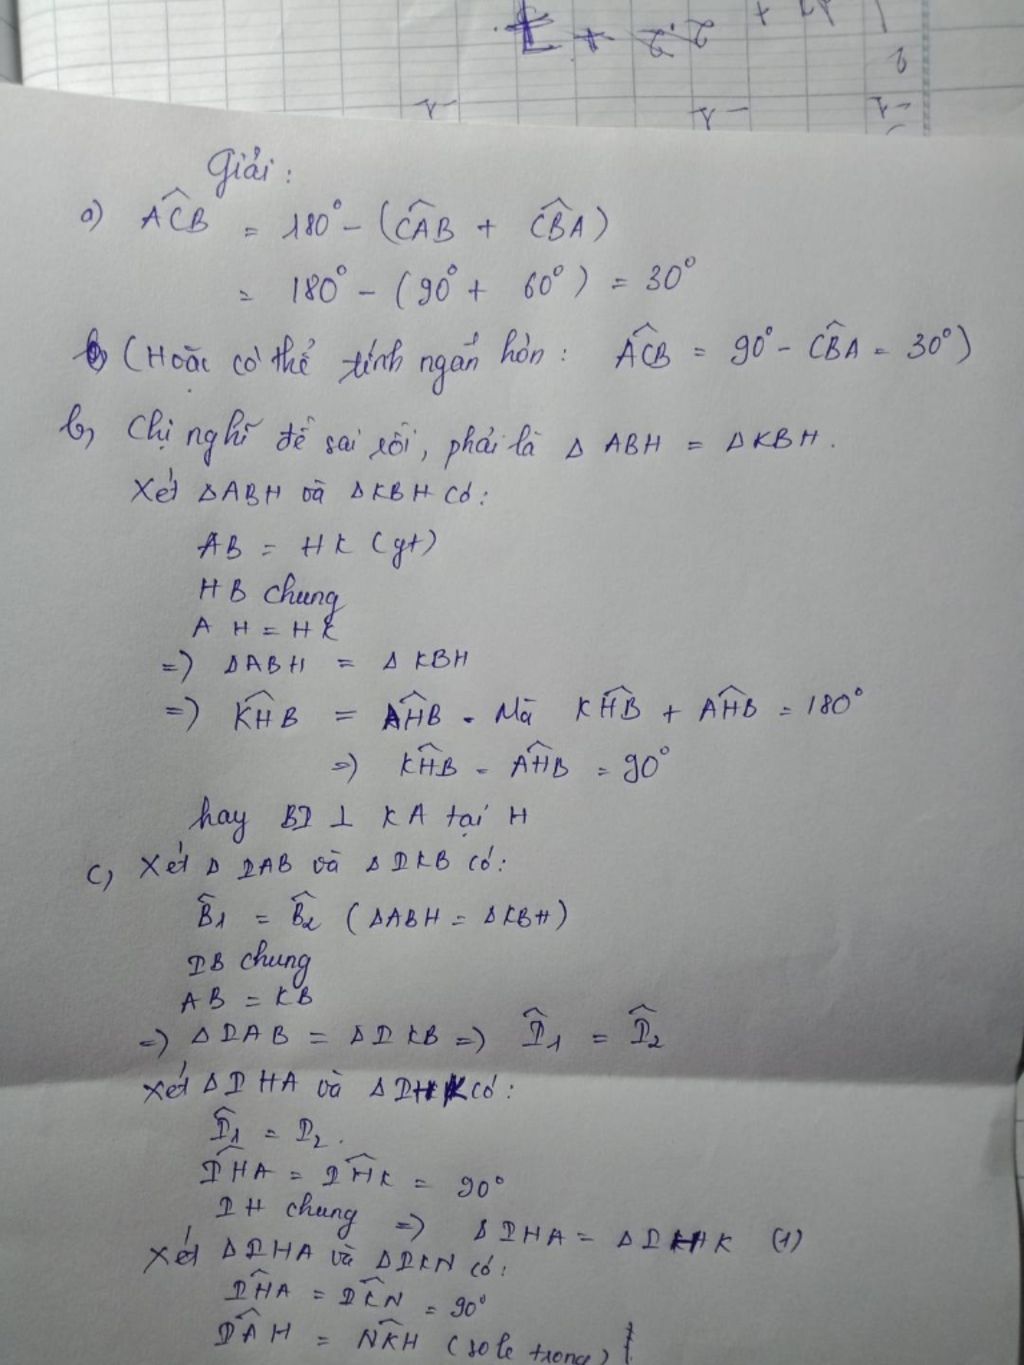 Giải:
a) ACB = 180° - (CAB + CBA)
= 180° - (90° + 60°) = 30°
(Hoặc có thể tính ngắn hơn: ACB = 90° - CBA = 30°)
b, Chị nghĩ đề sai rồi, phải là Δ ABH = Δ KBH.
Xét ΔABH và ΔKBH có:
AB = HK (gt)
HB chung
AH = HK
=) ΔABH = Δ KBH
=) KHB = AHB. Mà KHB + AHB = 180°
=) KHB = AHB = 90°
hay BI ⊥ KA tại H
c, Xét Δ IAB và Δ IKB có:
B1 = B2 (ΔABH = ΔKBH)
IB chung
AB = KB
=) ΔIAB = ΔIKB =) I1 = I2
Xét ΔIHA và ΔIHK có:
I1 = I2.
IHA = IHK = 90°
IH chung =) ΔIHA = ΔIHK (1)
Xét ΔIHA và ΔIKN có:
IHA = IKN = 90°
IAH = NKH (so le trong)